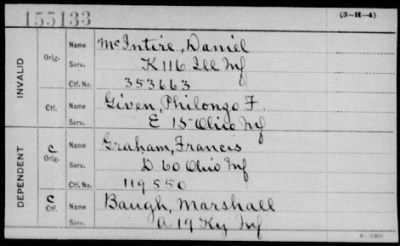 155133 (3-H-4)
INVALID
Orig. Name McIntire, Daniel
Serv. K 116 Ill Inf
Ctf. No. 353663
Ctf. Name Given, Philonzo F.
Serv. E 15 Ohio Inf
DEPENDENT
C Orig. Name Graham, Francis
Serv. D 60 Ohio Inf
Ctf. No. 119550
C Ctf. Name Baugh, Marshall
Serv. A 19 Ky Inf